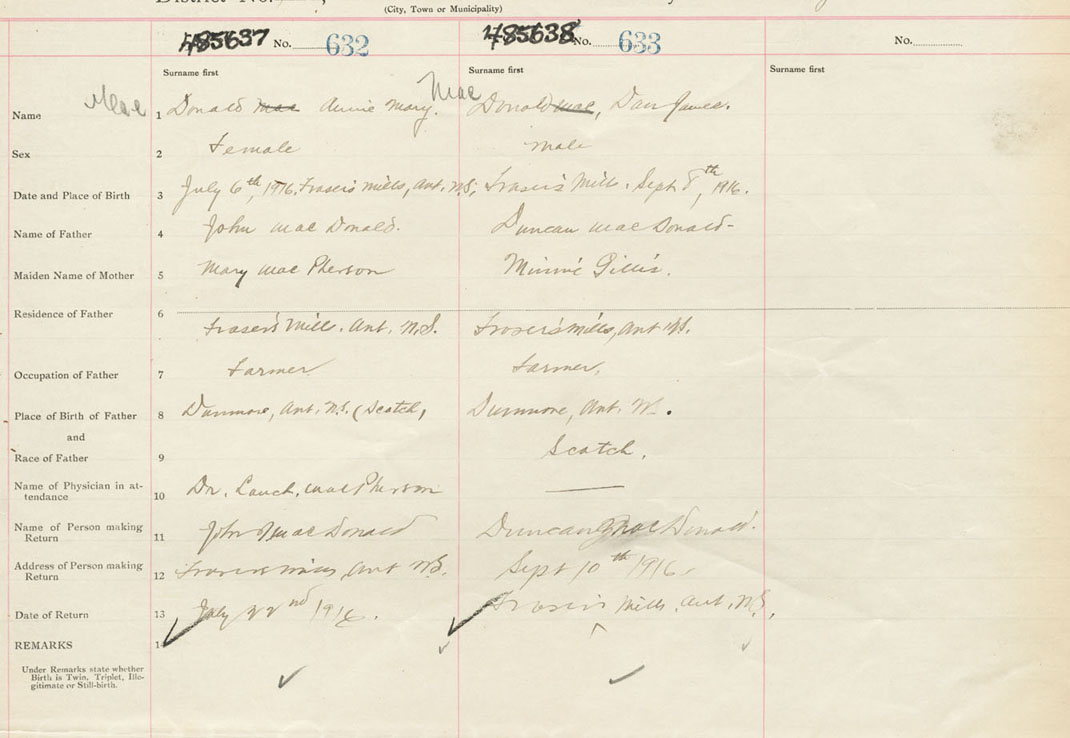 District No.
(City, Town or Municipality)
485637 No. 632 485638 No. 633 No.
Surname first Surname first Surname first
Name Mac 1 Donald Mac Annie Mary. Mac Donald Mac, Dan James.
Sex 2 Female Male
Date and Place of Birth 3 July 6th, 1916. Fraser's Mills, Ant. N.S; Fraser's Mills. Sept 8th, 1916.
Name of Father 4 John Mac Donald. Duncan Mac Donald-
Maiden Name of Mother 5 Mary Mac Pherson Minnie Gillis.
Residence of Father 6
Fraser's Mills. Ant. N.S. Fraser's Mills, Ant N.S.
Occupation of Father 7 Farmer Farmer,
Place of Birth of Father 8 Dunmore, Ant. N.S. (Scotch, Dunmore, Ant. N.S.
and
Race of Father 9 Scotch.
Name of Physician in at-
tendance 10 Dr. Lauch. Mac Pherson
Name of Person making
Return 11 John Mac Donald Duncan Mac Donald.
Address of Person making
Return 12 Fraser's Mills, Ant N.S. Sept 10th 1916
Date of Return 13 July 22nd 1916. Fraser's Mills, Ant. N.S.,
REMARKS 14
Under Remarks state whether
Birth is Twin, Triplet, Ille-
gitimate or Still-birth.